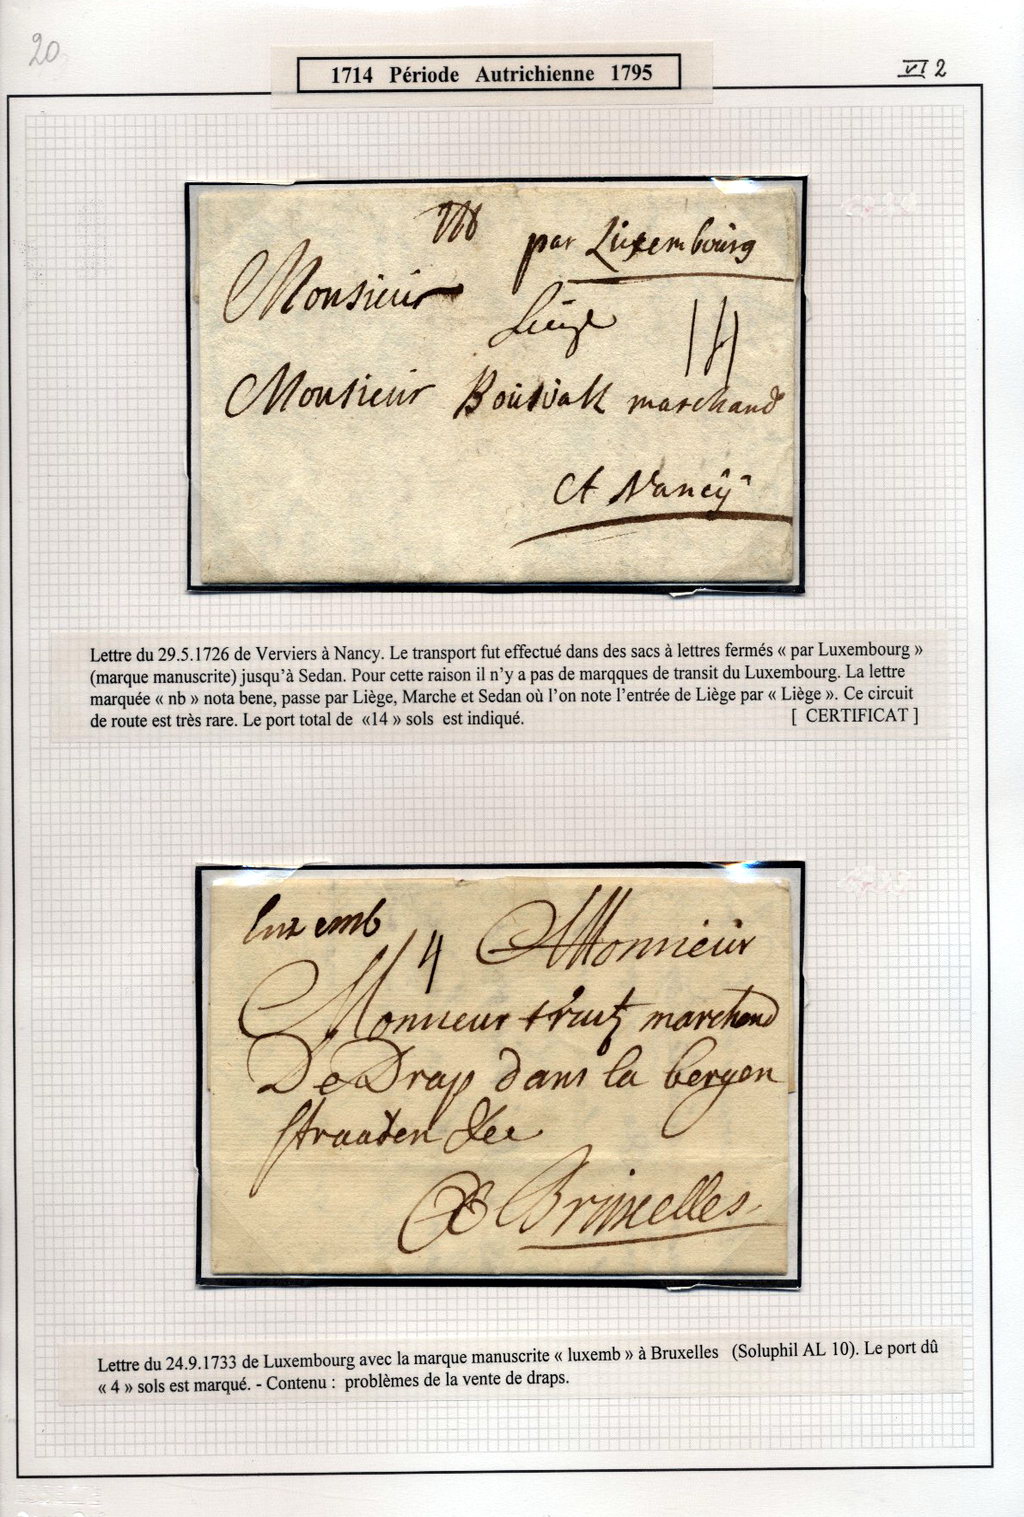 20
1714 Période Autrichienne 1795
VI 2
par Luxembourg
Monsieur
Liége
14
Monsieur marchand
A Nancÿ
Lettre du 29.5.1726 de Verviers à Nancy. Le transport fut effectué dans des sacs à lettres fermés « par Luxembourg »
(marque manuscrite) jusqu'à Sedan. Pour cette raison il n'y a pas de marqques de transit du Luxembourg. La lettre
marquée « nb » nota bene, passe par Liège, Marche et Sedan où l'on note l'entrée de Liège par « Liège ». Ce circuit
de route est très rare. Le port total de «14 » sols est indiqué. [ CERTIFICAT ]
luxemb
4
Monsieur
Monsieur marchand
De Drap dans la bergen
straaten
A Bruxelles
Lettre du 24.9.1733 de Luxembourg avec la marque manuscrite « luxemb » à Bruxelles (Soluphil AL 10). Le port dû
« 4 » sols est marqué. - Contenu : problèmes de la vente de draps.